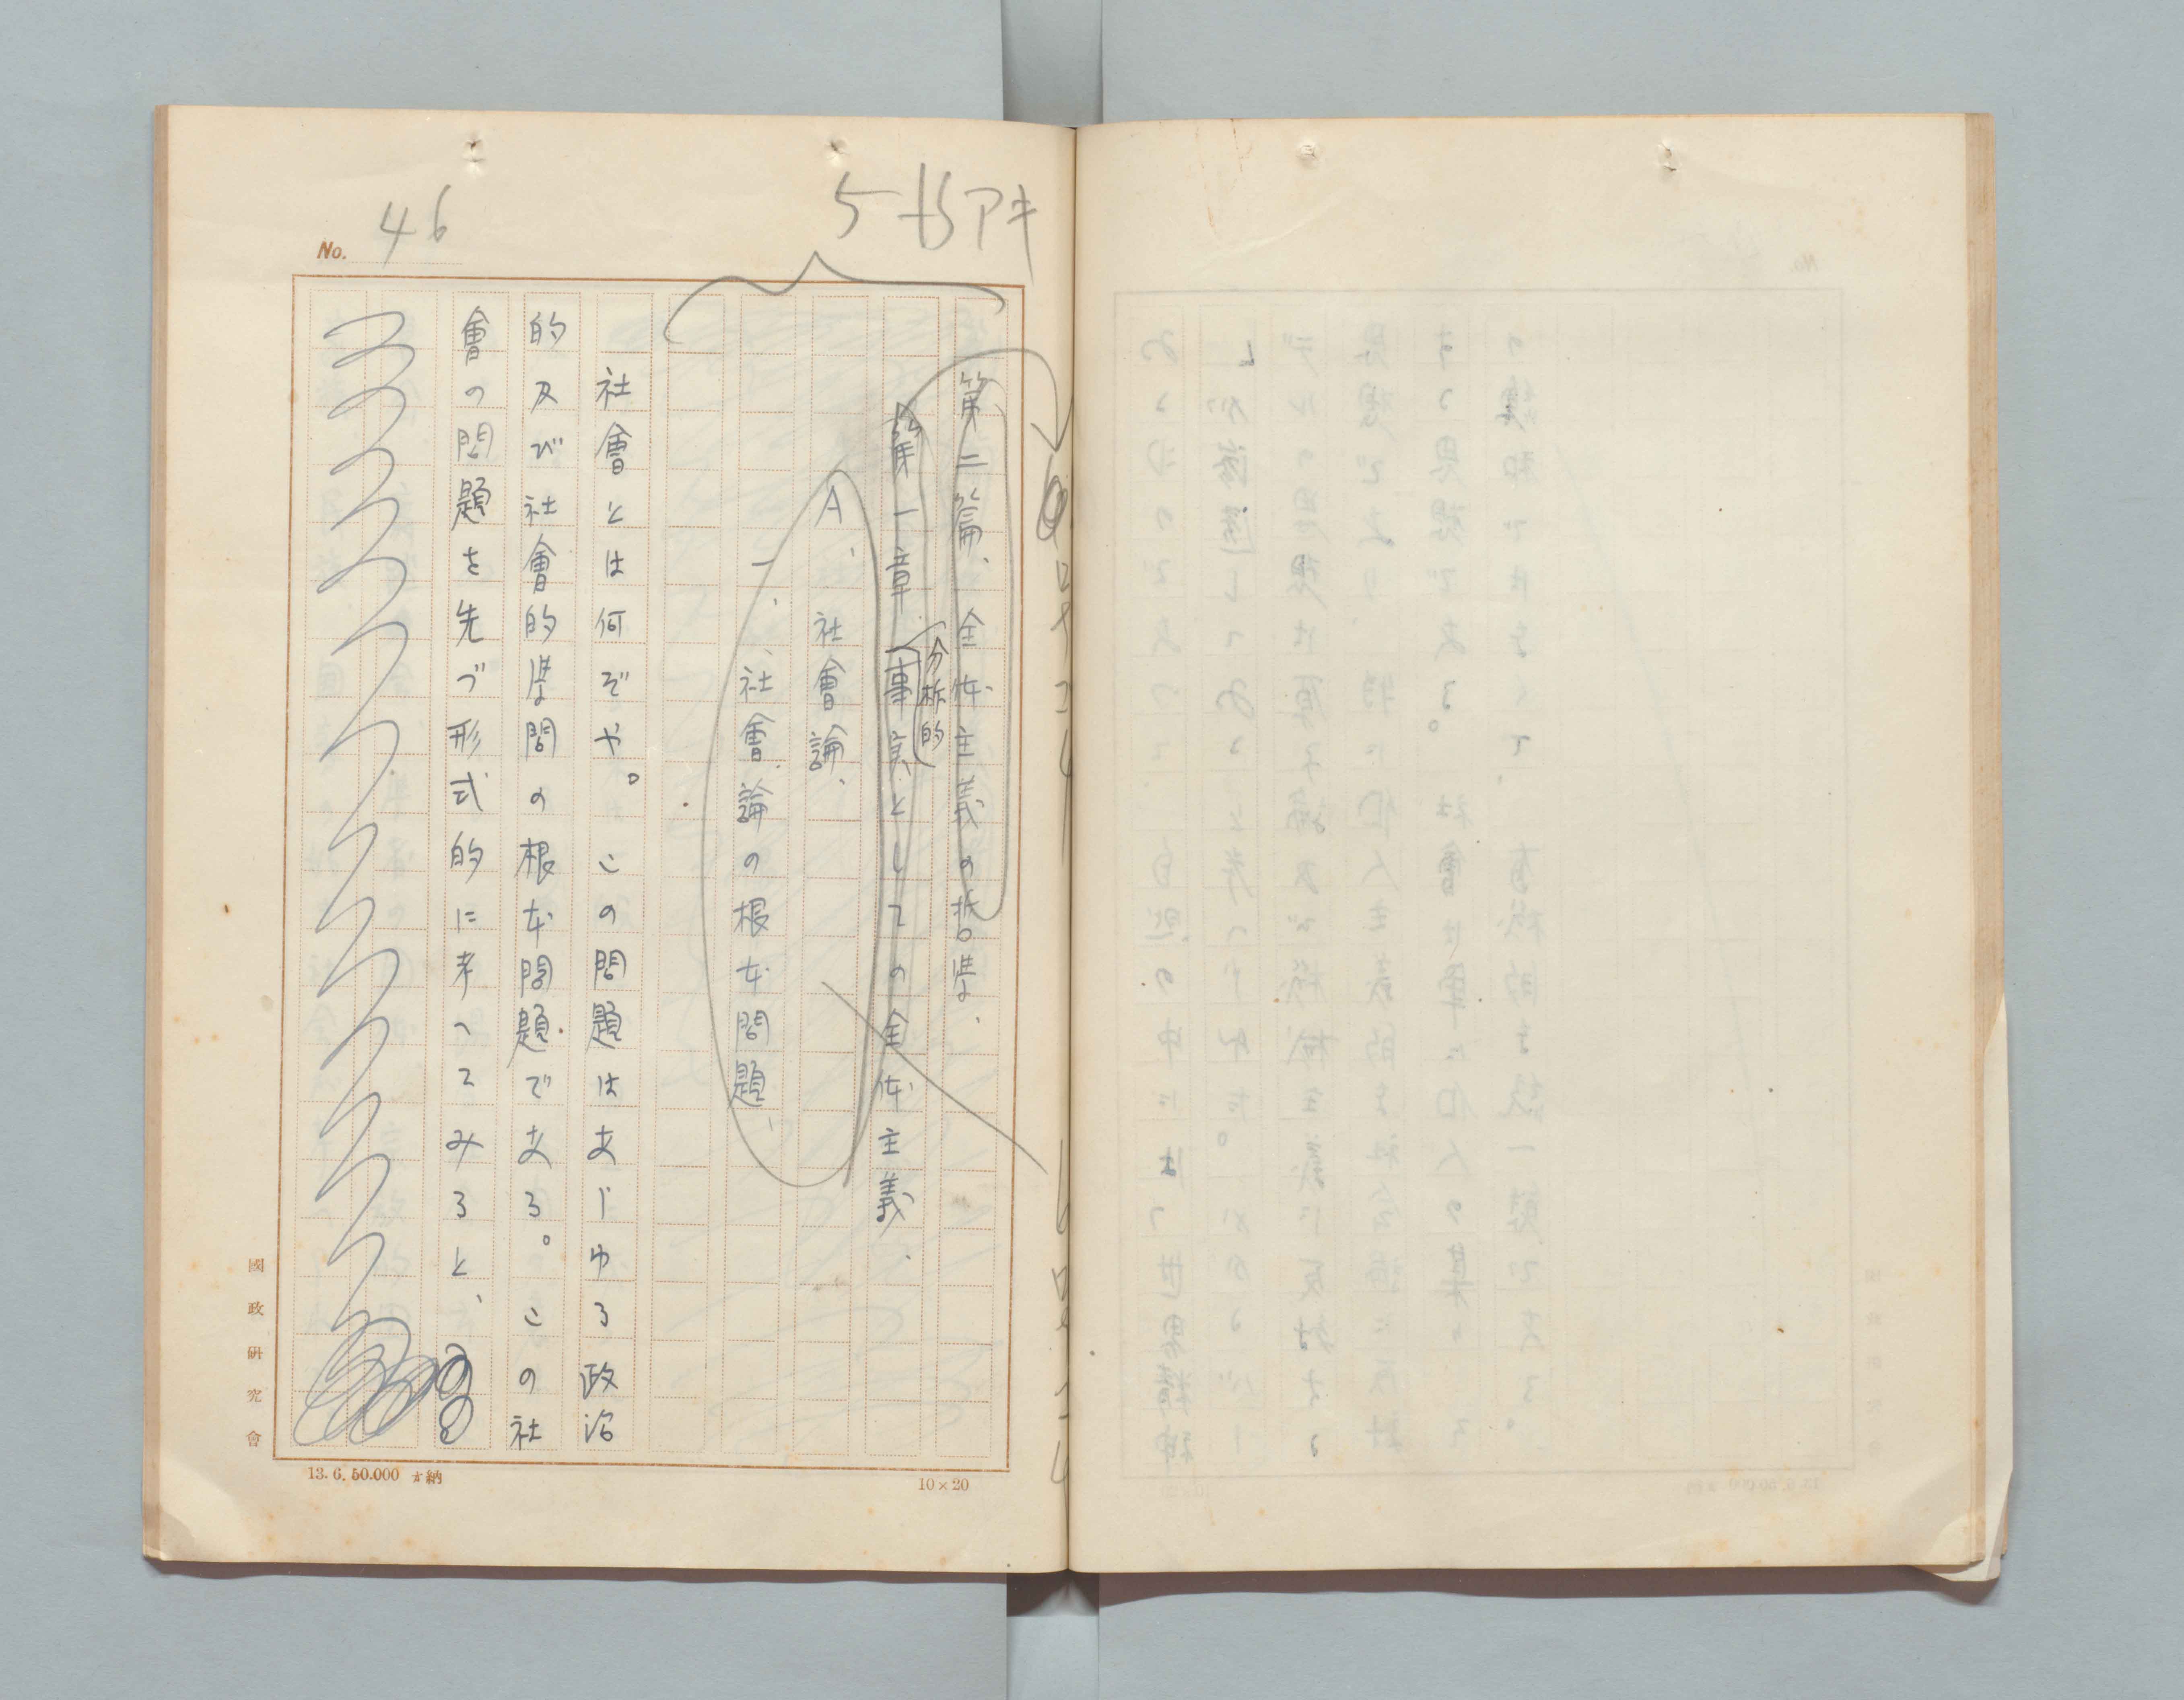 46
No.
5行アキ
第二篇、全体主義の哲学、
分析的
第一章、事実としての全体主義、
A、社會論、
一、社會論の根本問題、
社會とは何ぞや。この問題はあらゆる政治
的及び社會的学問の根本問題である。この社
會の問題を先づ形式的に考へてみると、
國政研究會
13.6.50.000 納
10×20